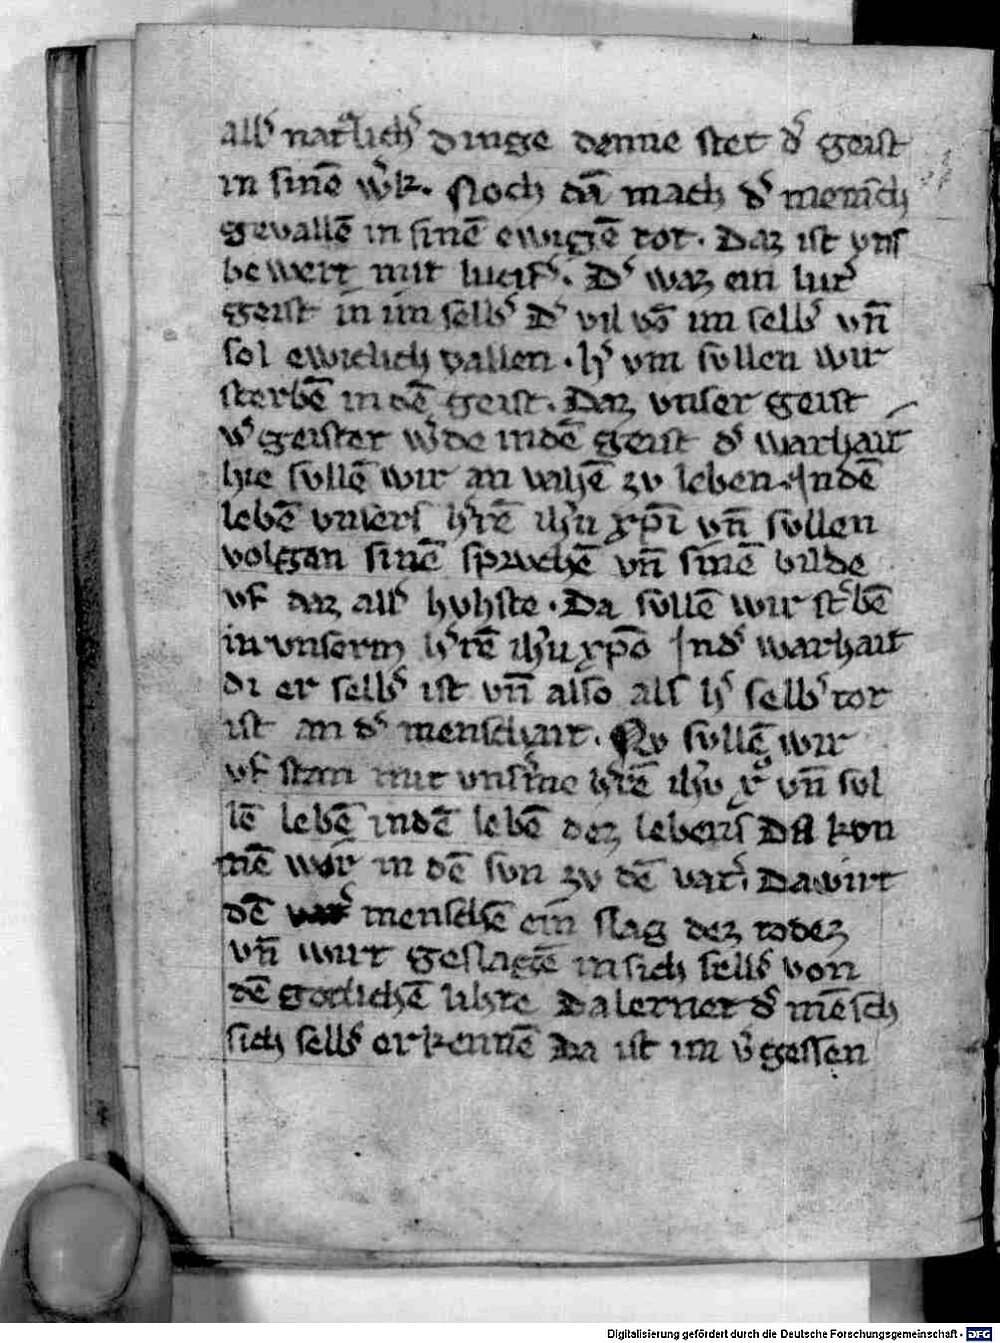 all᷑ nat᷑lich᷑ dinge denne stet d᷑ geist
in sinē w᷑k. Noch dā mach d᷑ mensch
gevallē in sinē ewigē tot. Daz ist vns
bewert mit lucif᷑. D᷑ waz ein lut᷑
geist in im selb᷑ D᷑ vil vō im selb᷑ vn̄
sol ewiclich vallen. h᷑ vm svllen wir
sterbē in dē geist. Daz vnser geist
w᷑geistet w᷑de in dē geist d᷑ warhait
hie svllē wir an vahē zv leben. In dē
lebē vnsers h᷑rē ih̄u xp̄i vn̄ svllen
volgen sinē sprvchē vn̄ sinē bilde
vf daz all᷑ hohste. Da svllē wir st᷑bē
in vnserm h᷑rē ih̄u xp̄o In d᷑ warhait
di er selb᷑ ist vn̄ also als h᷑ selb᷑ tot
ist an d᷑ menschait. Nv svllē wir
vf stan mit vns᷑me h᷑rē ih̄v x᷑ vn̄ svl
lē lebē in dē lebē dez lebens Da kon
mē wir in dē svn zv dē vat᷑. Da wirt
dē menschē ein slag dez todez
vn̄ wirt geslagē in sich selb᷑ von
dē gotlichē lihte Da lernet d᷑ mēsch
sich selb᷑ erkennē Da ist im v᷑gessen
Digitalisierung gefördert durch die Deutsche Forschungsgemeinschaft - DFG